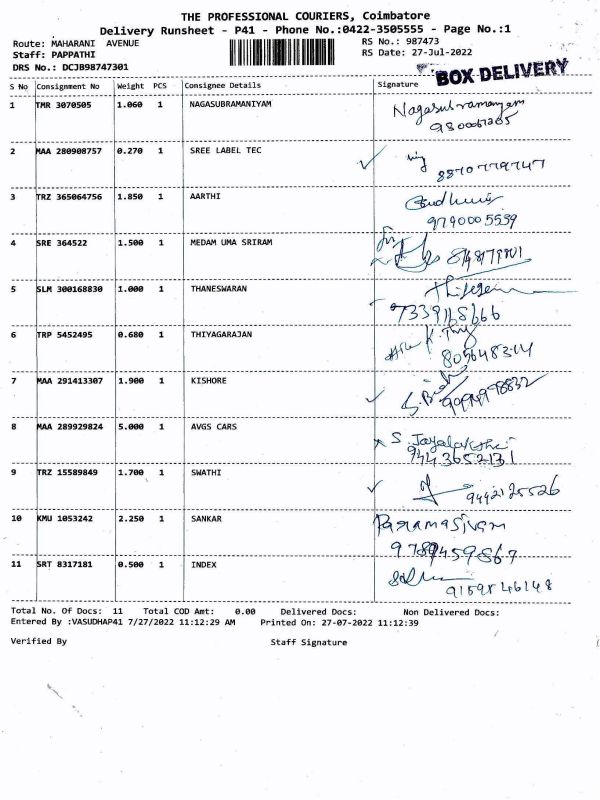 THE PROFESSIONAL COURIERS, Coimbatore
Delivery Runsheet - P41 - Phone No.:0422-3505555 - Page No.:1
Route: MAHARANI AVENUE
RS No.: 987473
Staff: PAPPATHI
RS Date: 27-Jul-2022
DRS No.: DCJB98747301
BOX DELIVERY
S No Consignment No Weight PCS Consignee Details Signature
1 TMR 3070505 1.060 1 NAGASUBRAMANIYAM Nagasubramanyam
2 MAA 280908757 0.270 1 SREE LABEL TEC
8870779747
3 TRZ 365064756 1.850 1 AARTHI
9790005559
4 SRE 364522 1.500 1 MEDAM UMA SRIRAM
5 SLM 300168830 1.000 1 THANESWARAN
6 TRP 5452495 0.680 1 THIYAGARAJAN
7 MAA 291413307 1.900 1 KISHORE
8 MAA 289929824 5.000 1 AVGS CARS
9443652131
9 TRZ 15589849 1.700 1 SWATHI
9442125526
10 KMU 1053242 2.250 1 SANKAR Paramasivam
9789459867
11 SRT 8317181 0.500 1 INDEX
Total No. Of Docs: 11 Total COD Amt: 0.00 Delivered Docs: Non Delivered Docs:
Entered By :VASUDHAP41 7/27/2022 11:12:29 AM Printed On: 27-07-2022 11:12:39
Verified By Staff Signature